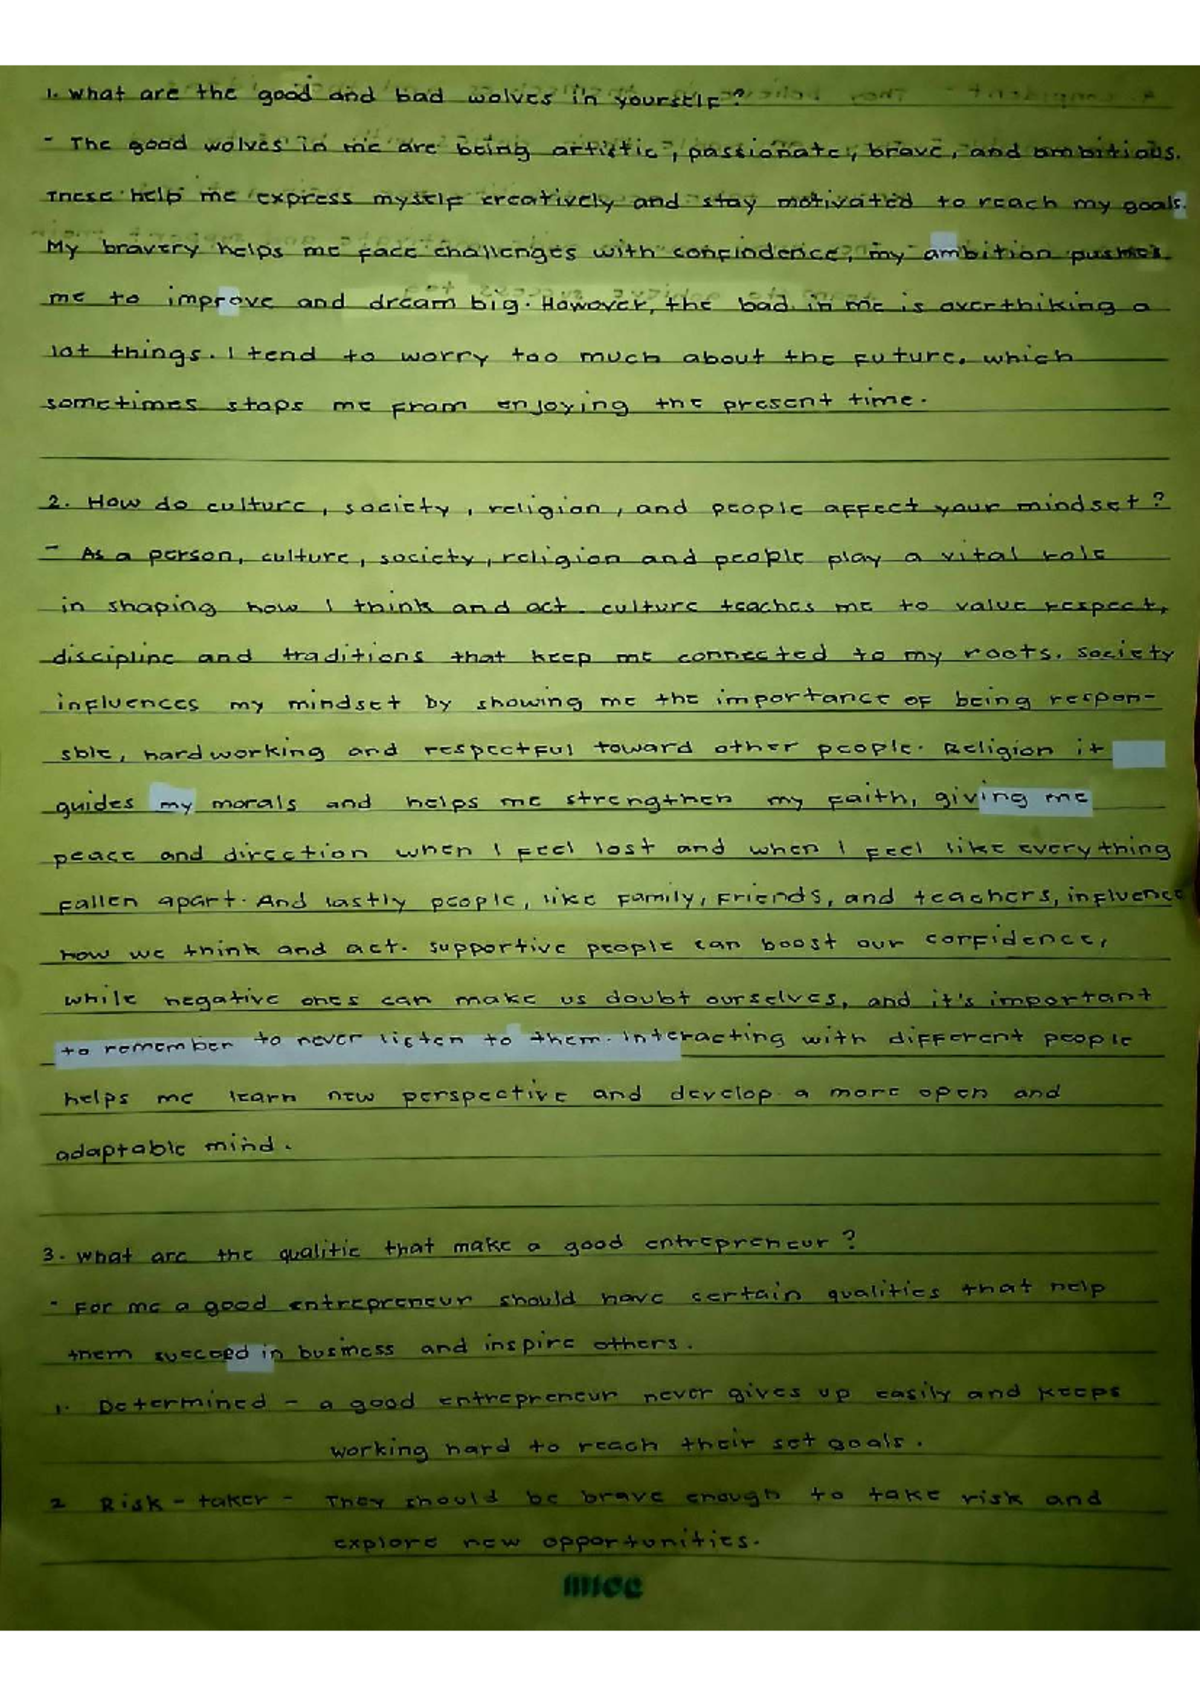 1. What are the good and bad wolves in yourself?
- The good wolves in me are being artistic, passionate, brave, and ambitious.
These help me express myself creatively and stay motivated to reach my goals.
My bravery helps me face challenges with confindence, my ambition pushes
me to improve and dream big. However, the bad in me is overthiking a
lot things. I tend to worry too much about the future, which
sometimes stops me from enjoying the present time.
2. How do culture, society, religion, and people affect your mindset?
- As a person, culture, society, religion and people play a vital role
in shaping how I think and act. culture teaches me to value respect,
discipline and traditions that keep me connected to my roots. Society
influences my mindset by showing me the importance of being respon-
sble, hardworking and respectful toward other people. Religion it
guides my morals and helps me strengthen my faith, giving me
peace and direction when I feel lost and when I feel like everything
fallen apart. And lastly people, like family, friends, and teachers, influence
how we think and act. supportive people can boost our confidence,
while negative ones can make us doubt ourselves, and it's important
to remember to never listen to them. Interacting with different people
helps me learn new perspective and develop a more open and
adaptable mind.
3. What are the qualitie that make a good entrepreneur?
- For me a good entrepreneur should have certain qualities that help
them succeed in business and inspire others.
1. Determined - a good entrepreneur never gives up easily and keeps
working hard to reach their set goals.
2 Risk - taker - They should be brave enough to take risk and
explore new opportunities.